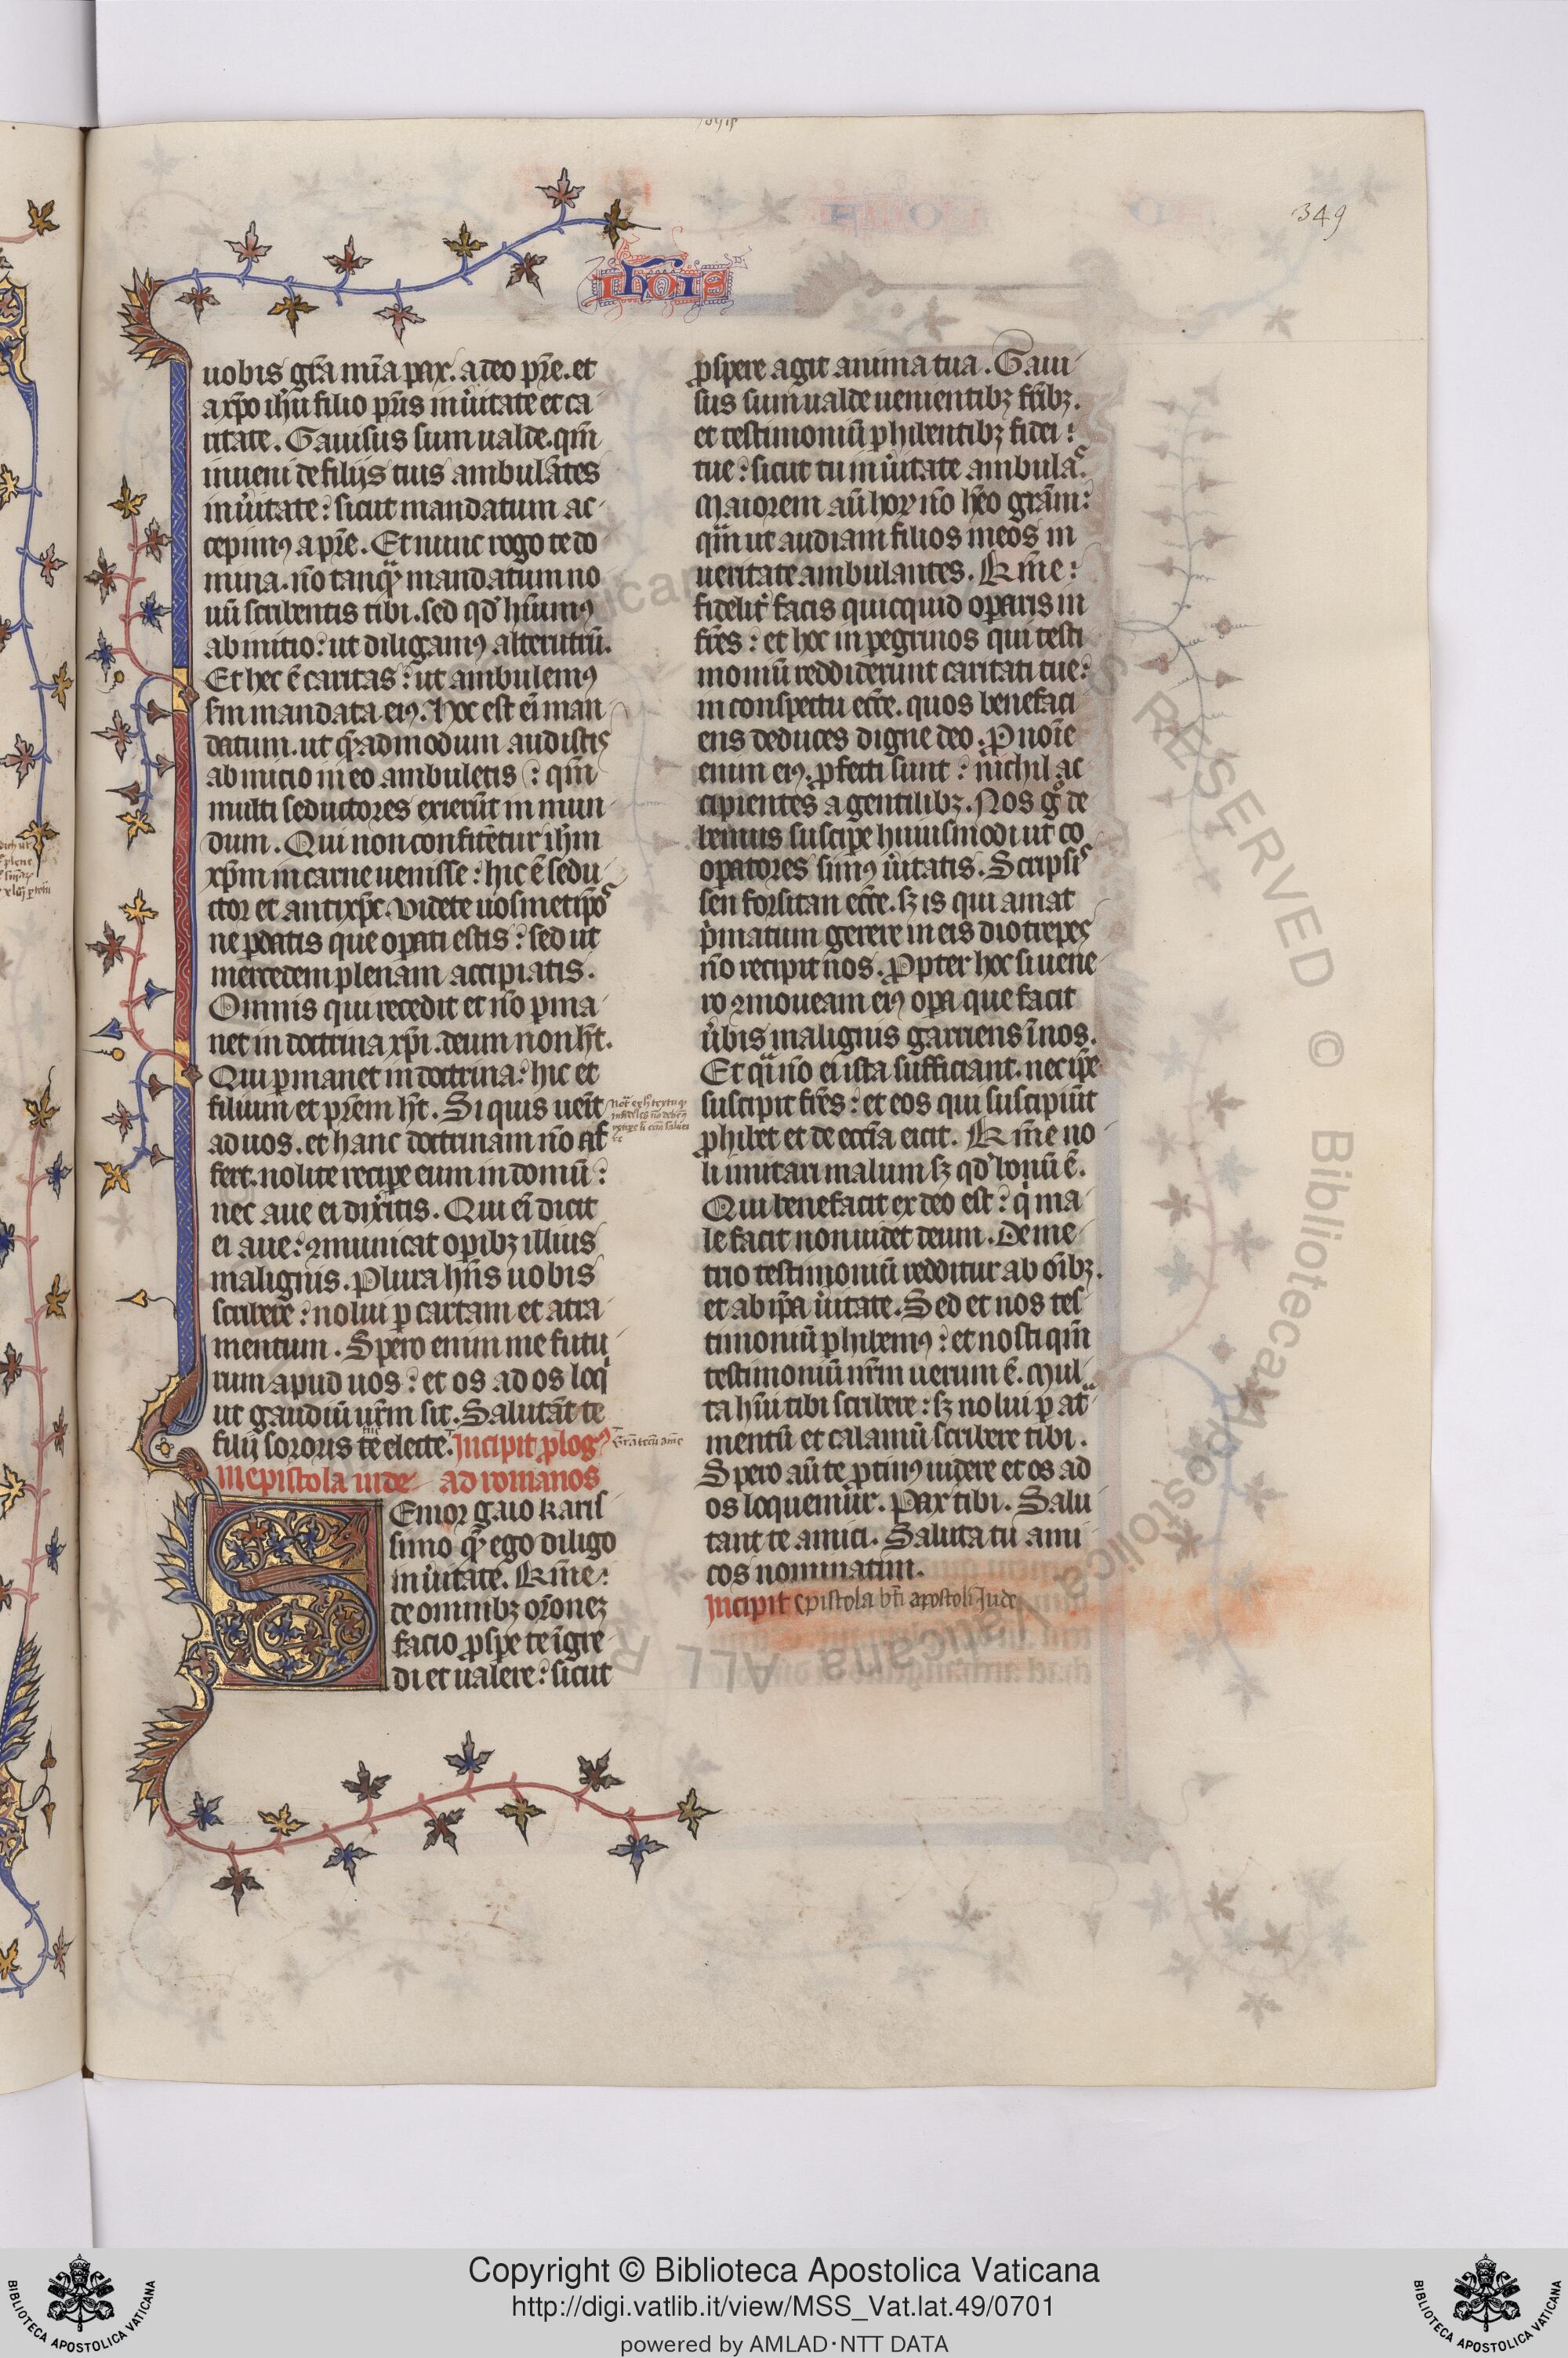 349
ihõis
uobis gr̃a mĩa pax. a deo pr̃e. et
a xp̃o ihũ filio pr̃is in ũitate et ca
ritate. Gauisus sum ualde. qm̃
inueni de filijs tuis ambulãtes
in ũitate: sicut mandatum ac
cepimꝰ a pr̃e. Et nunc rogo te do
mina. nõ tanqᷓꝫ mandatum no
uũ scribentis tibi. sed qđ habuimꝰ
ab initio: ut diligamꝰ alterutrũ.
Et hec ẽ caritas: ut ambulemꝰ
scđm mandata eiꝰ. Hoc est eĩ man
datum. ut qᷓadmodum audistis
ab inicio in eo ambuletis: qm̃
multi seductores exierũt in mun
dum. Qui non confitẽtur ihm̃
xp̃m in carne uenisse: hic ẽ sedu
ctor et antixp̃c. Videte uosmetip̃os
ne ꝑdatis que oꝑati estis: sed ut
mercedem plenam accipiatis.
Omnis qui recedit et nõ ꝑma
net in doctrina xp̃i. deum non hꝫ̃.
Qui ꝑmanet in doctrina: hic et
filium et pr̃em hꝫ̃. Si quis ueĩt
ad uos. et hanc doctrinam nõ af
fert. nolite recipe eum in domũ:
nec aue ei dixitis. Qui eĩ dicit
ei aue: ꝯmunicat oꝑibꝫ illius
malignis. Plura hñs uobis
scribere: nolui ꝑ cartam et atra
mentum. Spero enim me futu
rum apud uos: et os ad os loq̃
ut gaudiũ ur̃m sit. Salutãt te
filij sororis tue electe. Incipit ꝓlogꝰ
Gr̃a tecũ amẽ
in epistola iude ad romanos
Senior gaio karis
simo qᷓꝫ ego diligo
in ũitate. Km̃e:
de omnibꝫ orõnez
facio ꝓspe te ĩgre
di et ualere: sicut
ꝓspere agit anima tua. Gaui
sus sum ualde uenientibꝫ fr̃ibꝫ.
et testimoniũ ꝑhibentibꝫ fidei
tue: sicut tu in ũitate ambulas.
Maiorem aũ hoꝝ nõ hẽo gr̃am:
qᷓm ut audiam filios meos in
ueritate ambulantes. Km̃e:
fidelit̃ facis quicquid oꝑaris in
fr̃es: et hoc in ꝑegrinos qui testi
moniũ reddiderunt caritati tue:
in conspectu ecc̃e. quos benefaci
ens deduces digne deo. Pro noĩe
enim eiꝰ. ꝓfecti sunt: nichil ac
cipientes a gentilibꝫ. Nos gͦ de
bemus suscipe huiusmodi ut co
oꝑatores simꝰ ũitatis. Scripsis
sem forsitan ecc̃e. sꝫ is qui amat
p̃matum gerere in eis diotrepes
nõ recipit nos. Propter hoc si uene
ro ꝯmoueam eiꝰ oꝑa que facit
ũbis malignis garriens ĩ nos.
Et q̃i nõ ei ista sufficiant. nec ip̃e
suscipit fr̃es: et eos qui suscipiũt
ꝓhibet et de ecc̃ia eicit. Km̃e no
li imitari malum sꝫ qđ bonũ ẽ.
Qui benefacit ex deo est: q̃ ma
le facit non uidet deum. Deme
trio testimoniũ redditur ab oĩbꝫ.
et ab ip̃a ũitate. Sed et nos tes
timoniũ ꝑhibemꝰ: et nosti qm̃
testimoniũ nr̃m uerum ẽ. Mul
ta hũi tibi scribere: sꝫ nolui ꝑ at̃
mentũ et calamũ scribere tibi.
Spero aũ te ꝓtinꝰ uidere et os ad
os loquemur. Pax tibi. Salu
tant te amici. Saluta tu ami
cos nominatim.
Incipit epistola bt̃i apostoli Jude
BIBLIOTECA APOSTOLICA VATICANA
Copyright © Biblioteca Apostolica Vaticana
http://digi.vatlib.it/view/MSS_Vat.lat.49/0701
powered by AMLAD·NTT DATA
BIBLIOTECA APOSTOLICA VATICANA